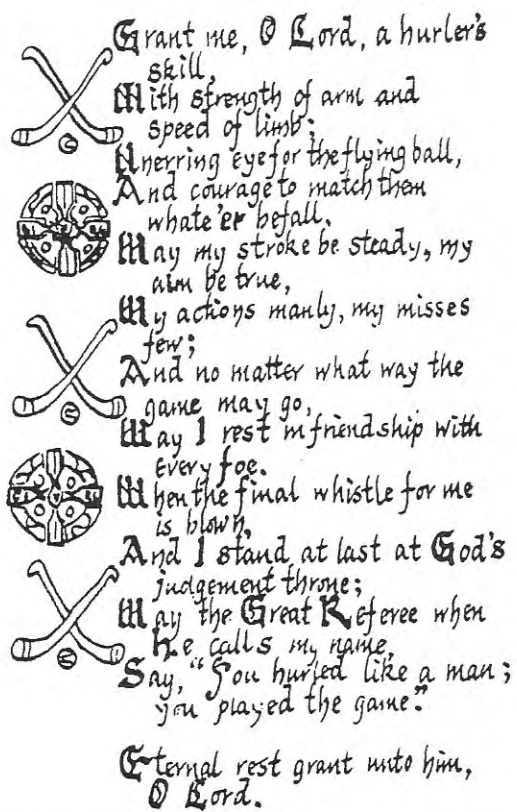 Grant me, O Lord, a hurler's
skill,
With strength of arm and
speed of limb;
Unerring eye for the flying ball,
And courage to match them
whate'er befall.
May my stroke be steady, my
aim be true,
My actions manly, my misses
few;
And no matter what way the
game may go,
May I rest in friendship with
every foe.
When the final whistle for me
is blown,
And I stand at last at God's
judgement throne;
May the Great Referee when
he calls my name,
Say, "You hurled like a man;
you played the game."
Eternal rest grant unto him,
O Lord.